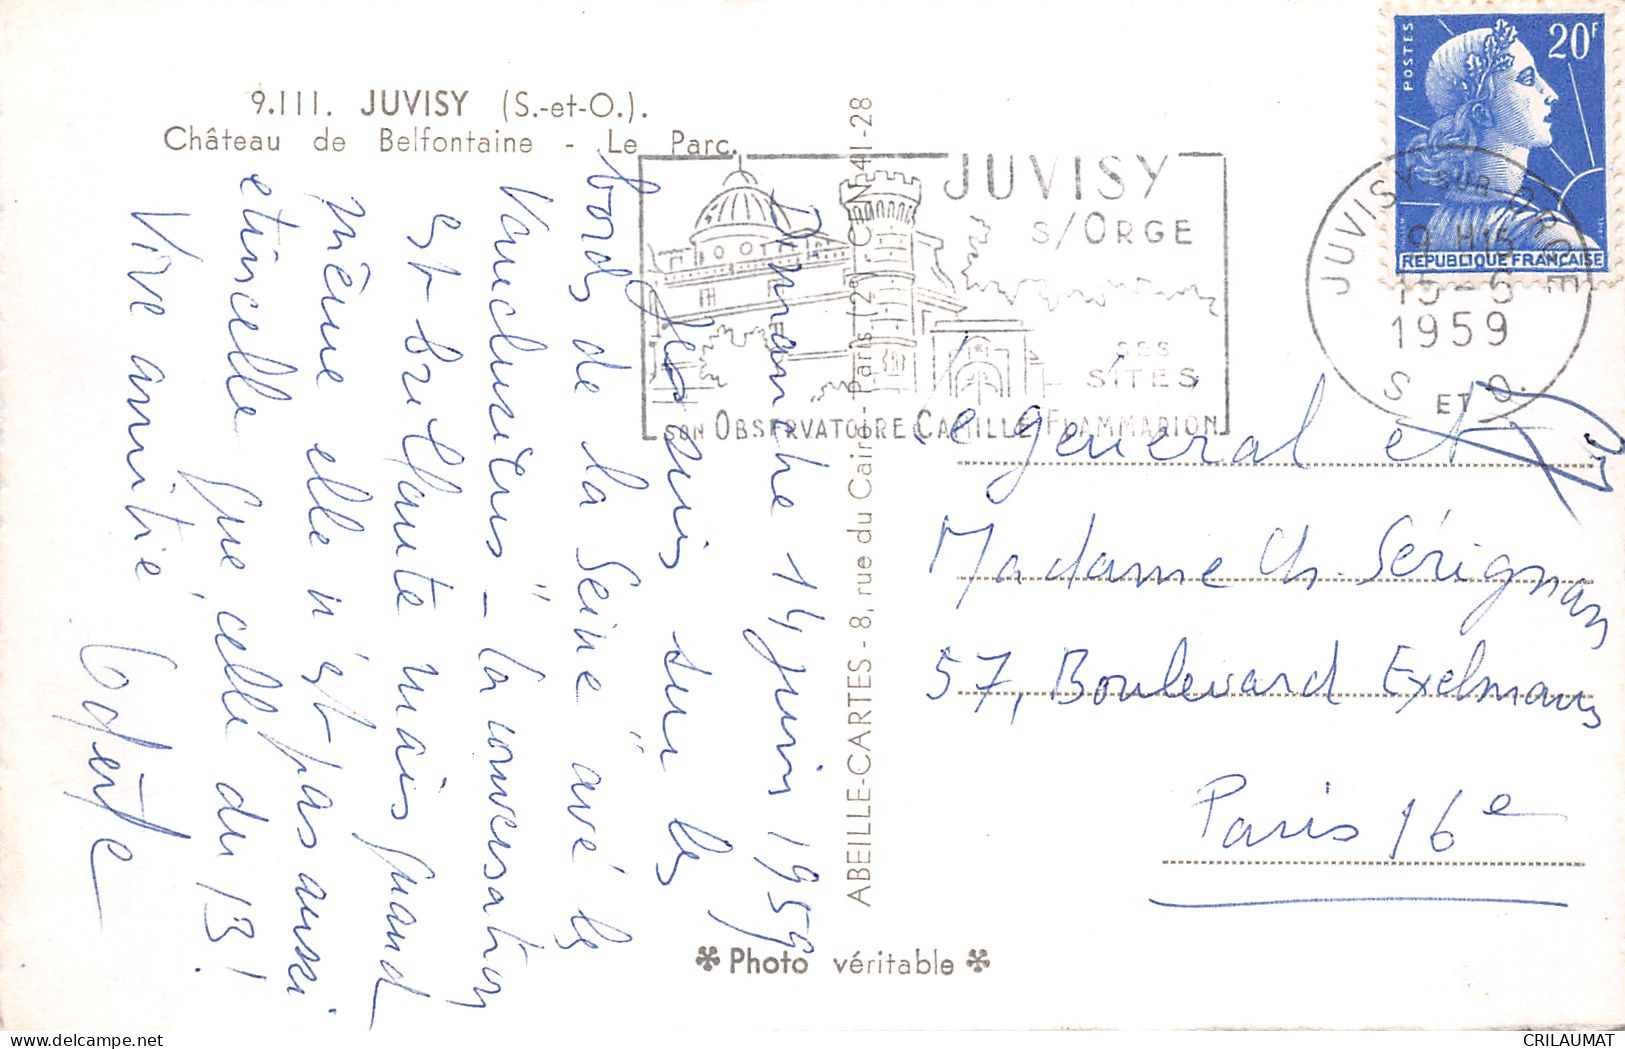 9.111. JUVISY (S.-et-O.).
Château de Belfontaine - Le Parc.
Dimanche 14 juin 1959
Je suis sur les
bords de la Seine avec les
Vauclusiens" - la conversation
est brillante mais quand
même elle n'est pas aussi
etincelle que celle du 13!
Vive amitié,
ABEILLE-CARTES - 8, rue du Caire - Paris (2e) CEN 41-28
JUVISY
S/ORGE
SES
SITES
SON OBSERVATOIRE CAMILLE FLAMMARION
POSTES
20F
REPUBLIQUE FRANÇAISE
JUVISY SUR ORGE
9 H15
15-6
1959
S ET O.
Le général et
Madame Ch. Sérignan
57, Boulevard Exelmans
Paris 16e
Photo véritable
CRILAUMAT